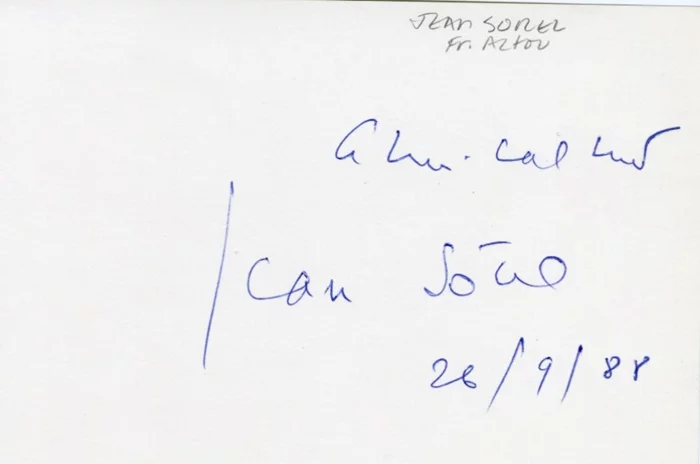 JEAN SOREL
Fr. ACTOR
Amicalement
Jean Sorel
26/9/88